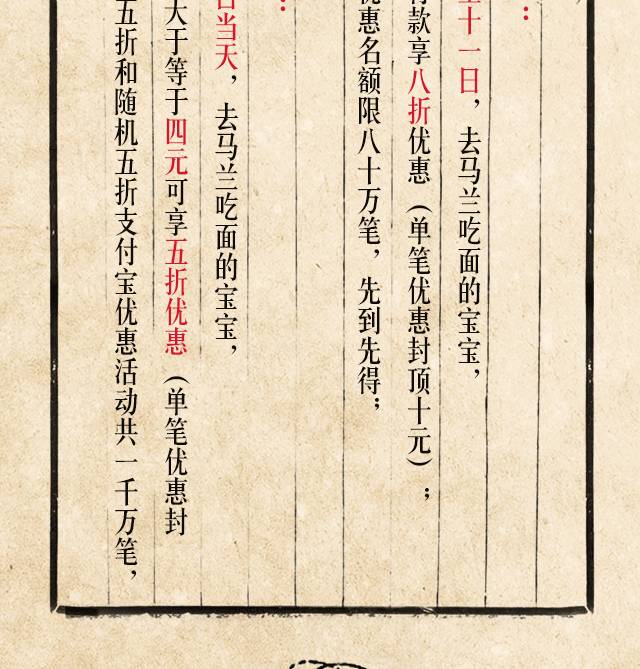 ：
十一日，去马兰吃面的宝宝，
款享八折优惠（单笔优惠封顶十元）；
惠名额限八十万笔，先到先得；
：
当天，去马兰吃面的宝宝，
大于等于四元可享五折优惠（单笔优惠封
五折和随机五折支付宝优惠活动共一千万笔，